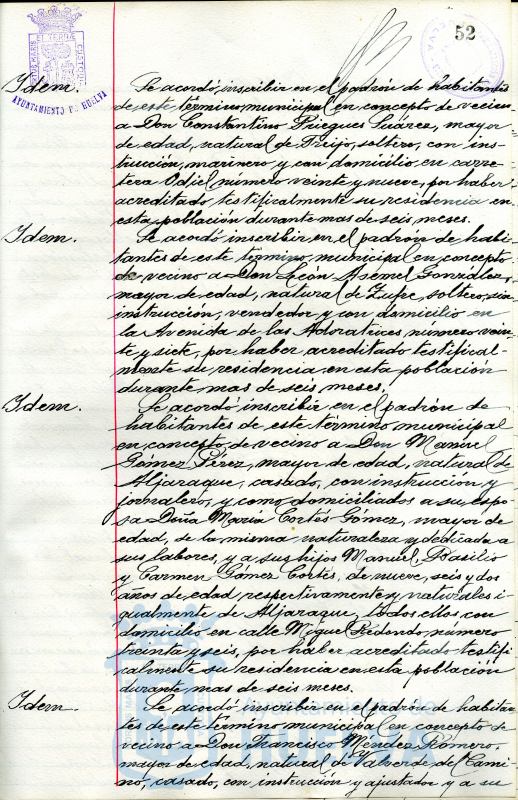 52
AYUNTAMIENTO DE HUELVA
Idem. Se acordó inscribir en el padrón de habitantes
de este término municipal en concepto de vecino
a Don Constantino Priegues Suárez, mayor
de edad, natural de Freijo, soltero, con ins-
trucción, marinero y con domicilio en carre-
tera Odiel número veinte y nueve, por haber
acreditado testificalmente su residencia en
esta población durante mas de seis meses.
Idem. Se acordó inscribir en el padrón de habi-
tantes de este término municipal en concepto
de vecino a Don León Asemel González,
mayor de edad, natural de Zufre, soltero, sin
instrucción, vendedor y con domicilio en
la Avenida de las Adoratrices número vein-
te y siete, por haber acreditado testifical-
mente su residencia en esta población
durante mas de seis meses.
Idem. Se acordó inscribir en el padrón de
habitantes de este término municipal
en concepto de vecino a Don Manuel
Gómez Pérez, mayor de edad, natural de
Aljaraque, casado, con instrucción y
jornalero, y como domiciliados a su espo-
sa Doña María Cortés Gómez, mayor de
edad, de la misma naturaleza y dedicada a
sus labores, y a sus hijos Manuel, Basilio
y Carmen Gómez Cortés, de nueve, seis y dos
años de edad respectivamente y naturales i-
gualmente de Aljaraque, todos ellos con
domicilio en calle Miguel Redondo, número
treinta y seis, por haber acreditado testifi-
calmente su residencia en esta población
durante mas de seis meses.
Idem. Se acordó inscribir en el padrón de habitan-
tes de este término municipal en concepto de
vecino a Don Francisco Méndez Romero,
mayor de edad, natural de Valverde del Cami-
no, casado, con instrucción y ajustador y a su